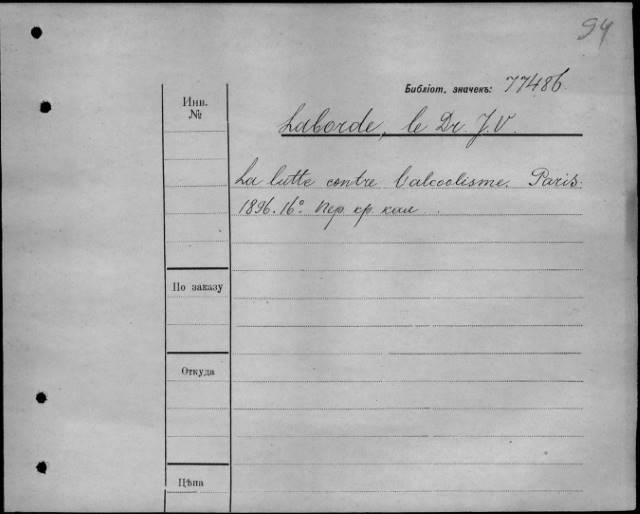 94
Библіот. значекъ: 77486.
Инв. №
Laborde, le Dr. J. V.
La lutte contre l'alcoolisme. Paris.
1896. 16°. Пер. кр. кал.
По заказу
Откуда
Цѣна